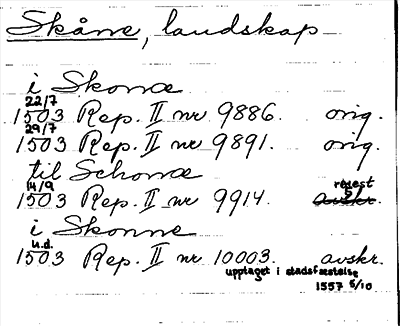 Skåne, landskap
i Skonæ
22/7
1503 Rep. II nr 9886. orig.
29/7
1503 Rep. II nr 9891. orig.
til Schonæ
14/9 regest
1503 Rep. II nr 9914. avskr.
i Skonne
u.d.
1503 Rep. II nr 10003. avskr.
upptaget i stadsfæstelse
1557 5/10